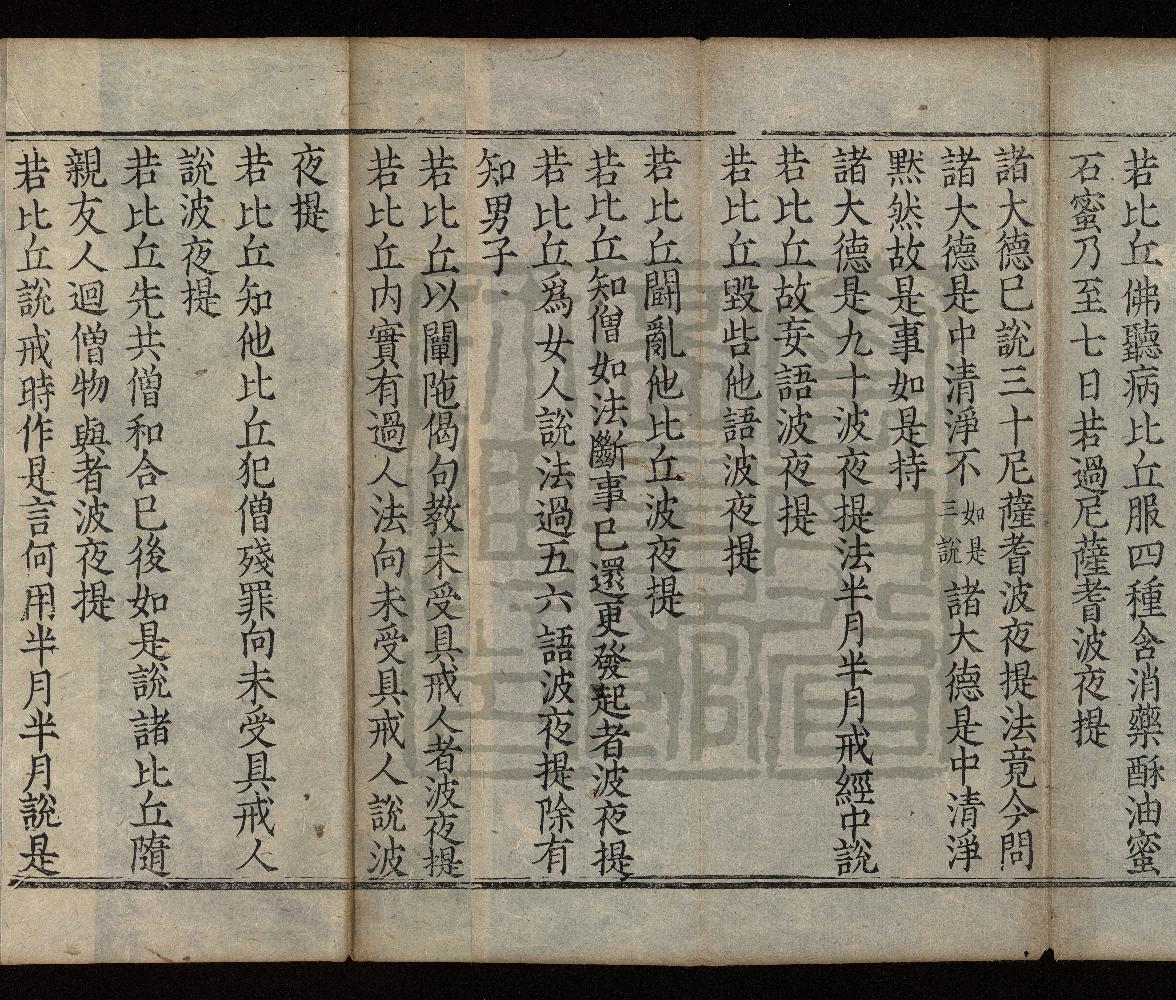 若比丘佛聽病比丘服四種含消藥酥油蜜
石蜜乃至七日若過尼薩耆波夜提
諸大德已說三十尼薩耆波夜提法竟今問
諸大德是中清淨不如是三說諸大德是中清淨
默然故是事如是持
諸大德是九十波夜提法半月半月戒經中說
若比丘故妄語波夜提
若比丘毀呰他語波夜提
若比丘鬬亂他比丘波夜提
若比丘知僧如法斷事已還更發起者波夜提
若比丘爲女人說法過五六語波夜提除有
知男子
若比丘以闡陁偈句教未受具戒人者波夜提
若比丘内實有過人法向未受具戒人說波
夜提
若比丘知他比丘犯僧殘罪向未受具戒人
說波夜提
若比丘先共僧和合已後如是說諸比丘隨
親友人迴僧物與者波夜提
若比丘說戒時作是言何用半月半月說是